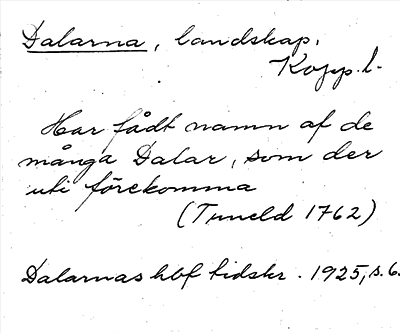 Dalarna, landskap,
Kopp. l.
Har fådt namn af de
många Dalar, som der
uti förekomma
(Tuneld 1762)
Dalarnas hbf tidskr. 1925, s. 6.